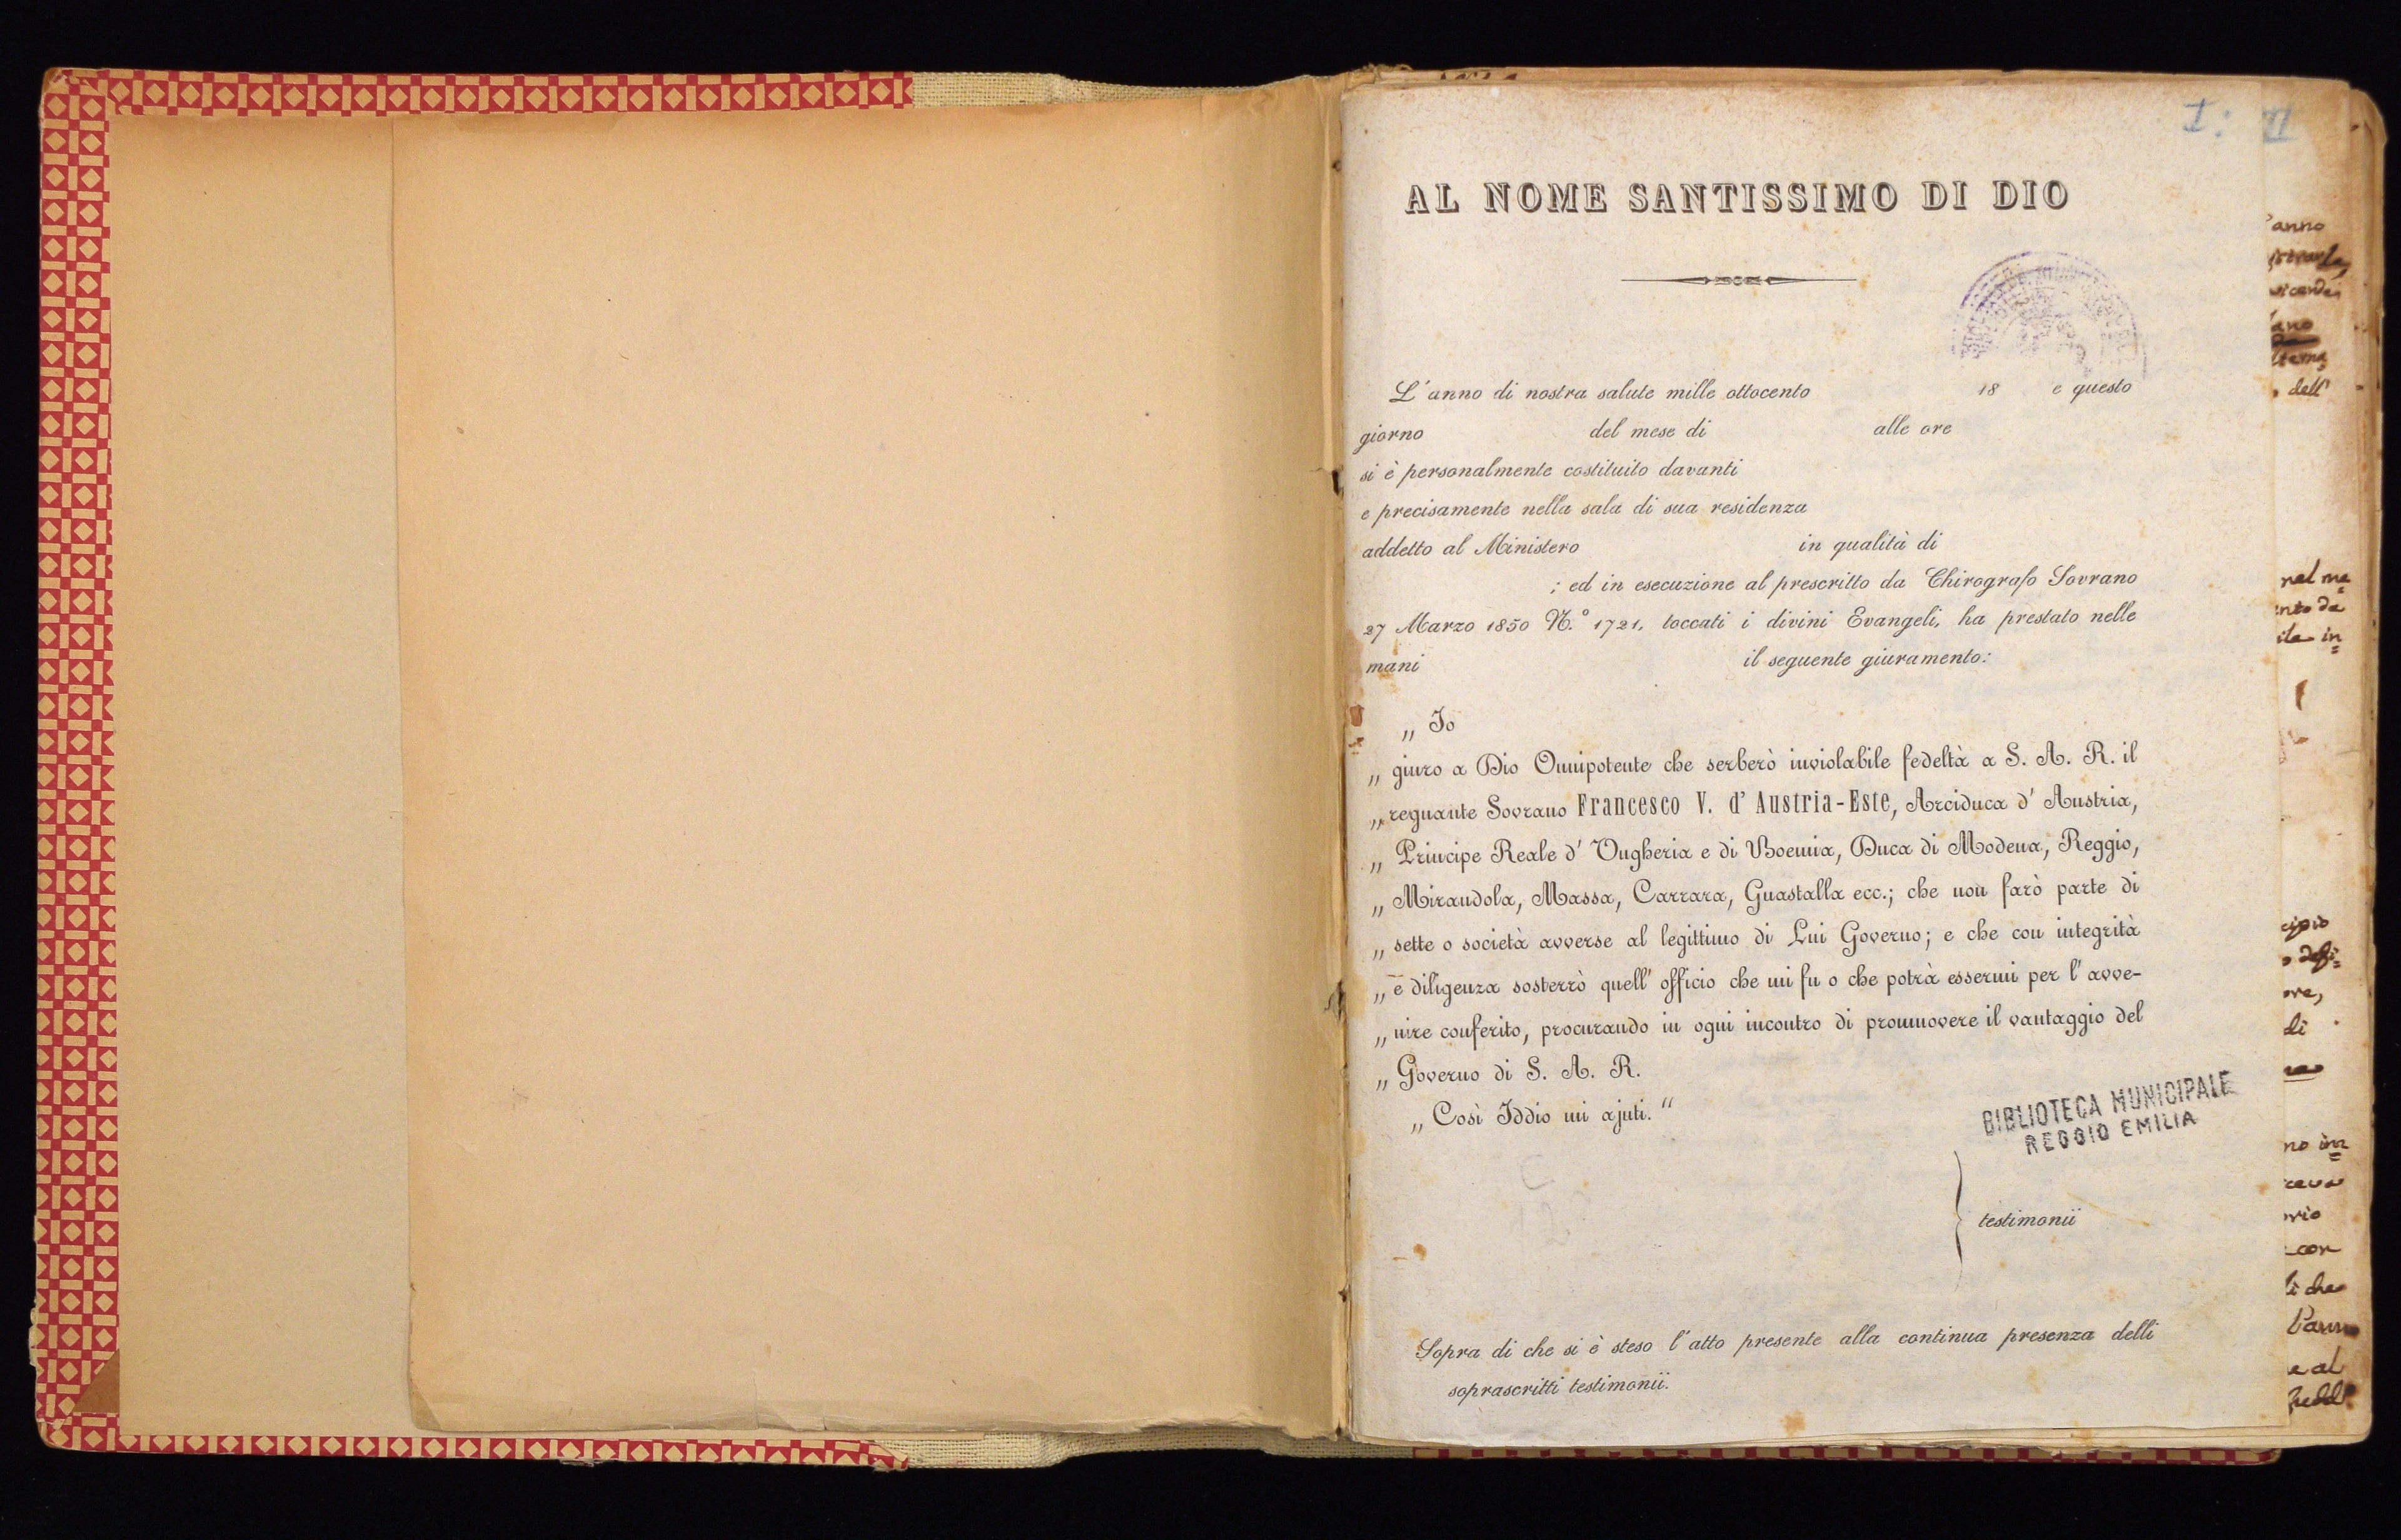 I: II
AL NOME SANTISSIMO DI DIO
L'anno di nostra salute mille ottocento 18 e questo
giorno del mese di alle ore
si è personalmente costituito davanti
e precisamente nella sala di sua residenza
addetto al Ministero in qualità di
; ed in esecuzione al prescritto da Chirografo Sovrano
27 Marzo 1850 N.° 1721, toccati i divini Evangeli, ha prestato nelle
mani il seguente giuramento:
„ Io
„ giuro a Dio Onnipotente che serberò inviolabile fedeltà a S. A. R. il
„ regnante Sovrano Francesco V. d' Austria-Este, Arciduca d' Austria,
„ Principe Reale d' Ungheria e di Boemia, Duca di Modena, Reggio,
„ Mirandola, Massa, Carrara, Guastalla ecc.; che non farò parte di
„ sette o società avverse al legittimo di Lui Governo; e che con integrità
„ e diligenza sosterrò quell' officio che mi fu o che potrà essermi per l' avve-
„ nire conferito, procurando in ogni incontro di promuovere il vantaggio del
„ Governo di S. A. R.
„ Così Iddio mi ajuti. “
BIBLIOTECA MUNICIPALE
REGGIO EMILIA
testimonii
Sopra di che si è steso l'atto presente alla continua presenza delli
soprascritti testimonii.
anno
dell'
nel me
nto da
in
cipio
ore,
di
no im
orio
con
li che
e al